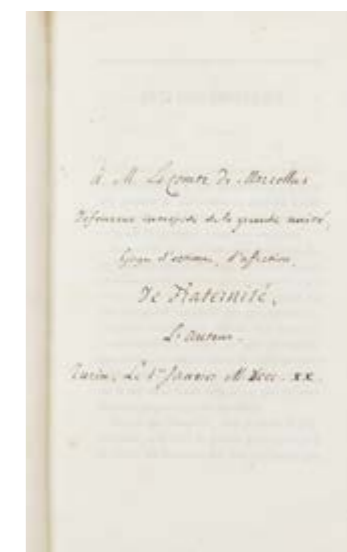 à M. Le Comte de Marcellus
Défenseur intrépide de la grande unité,
Gage d'estime, d'affection,
De Fraternité,
L'auteur.
Turin, Le 1er Janvier M DCCC. XX.